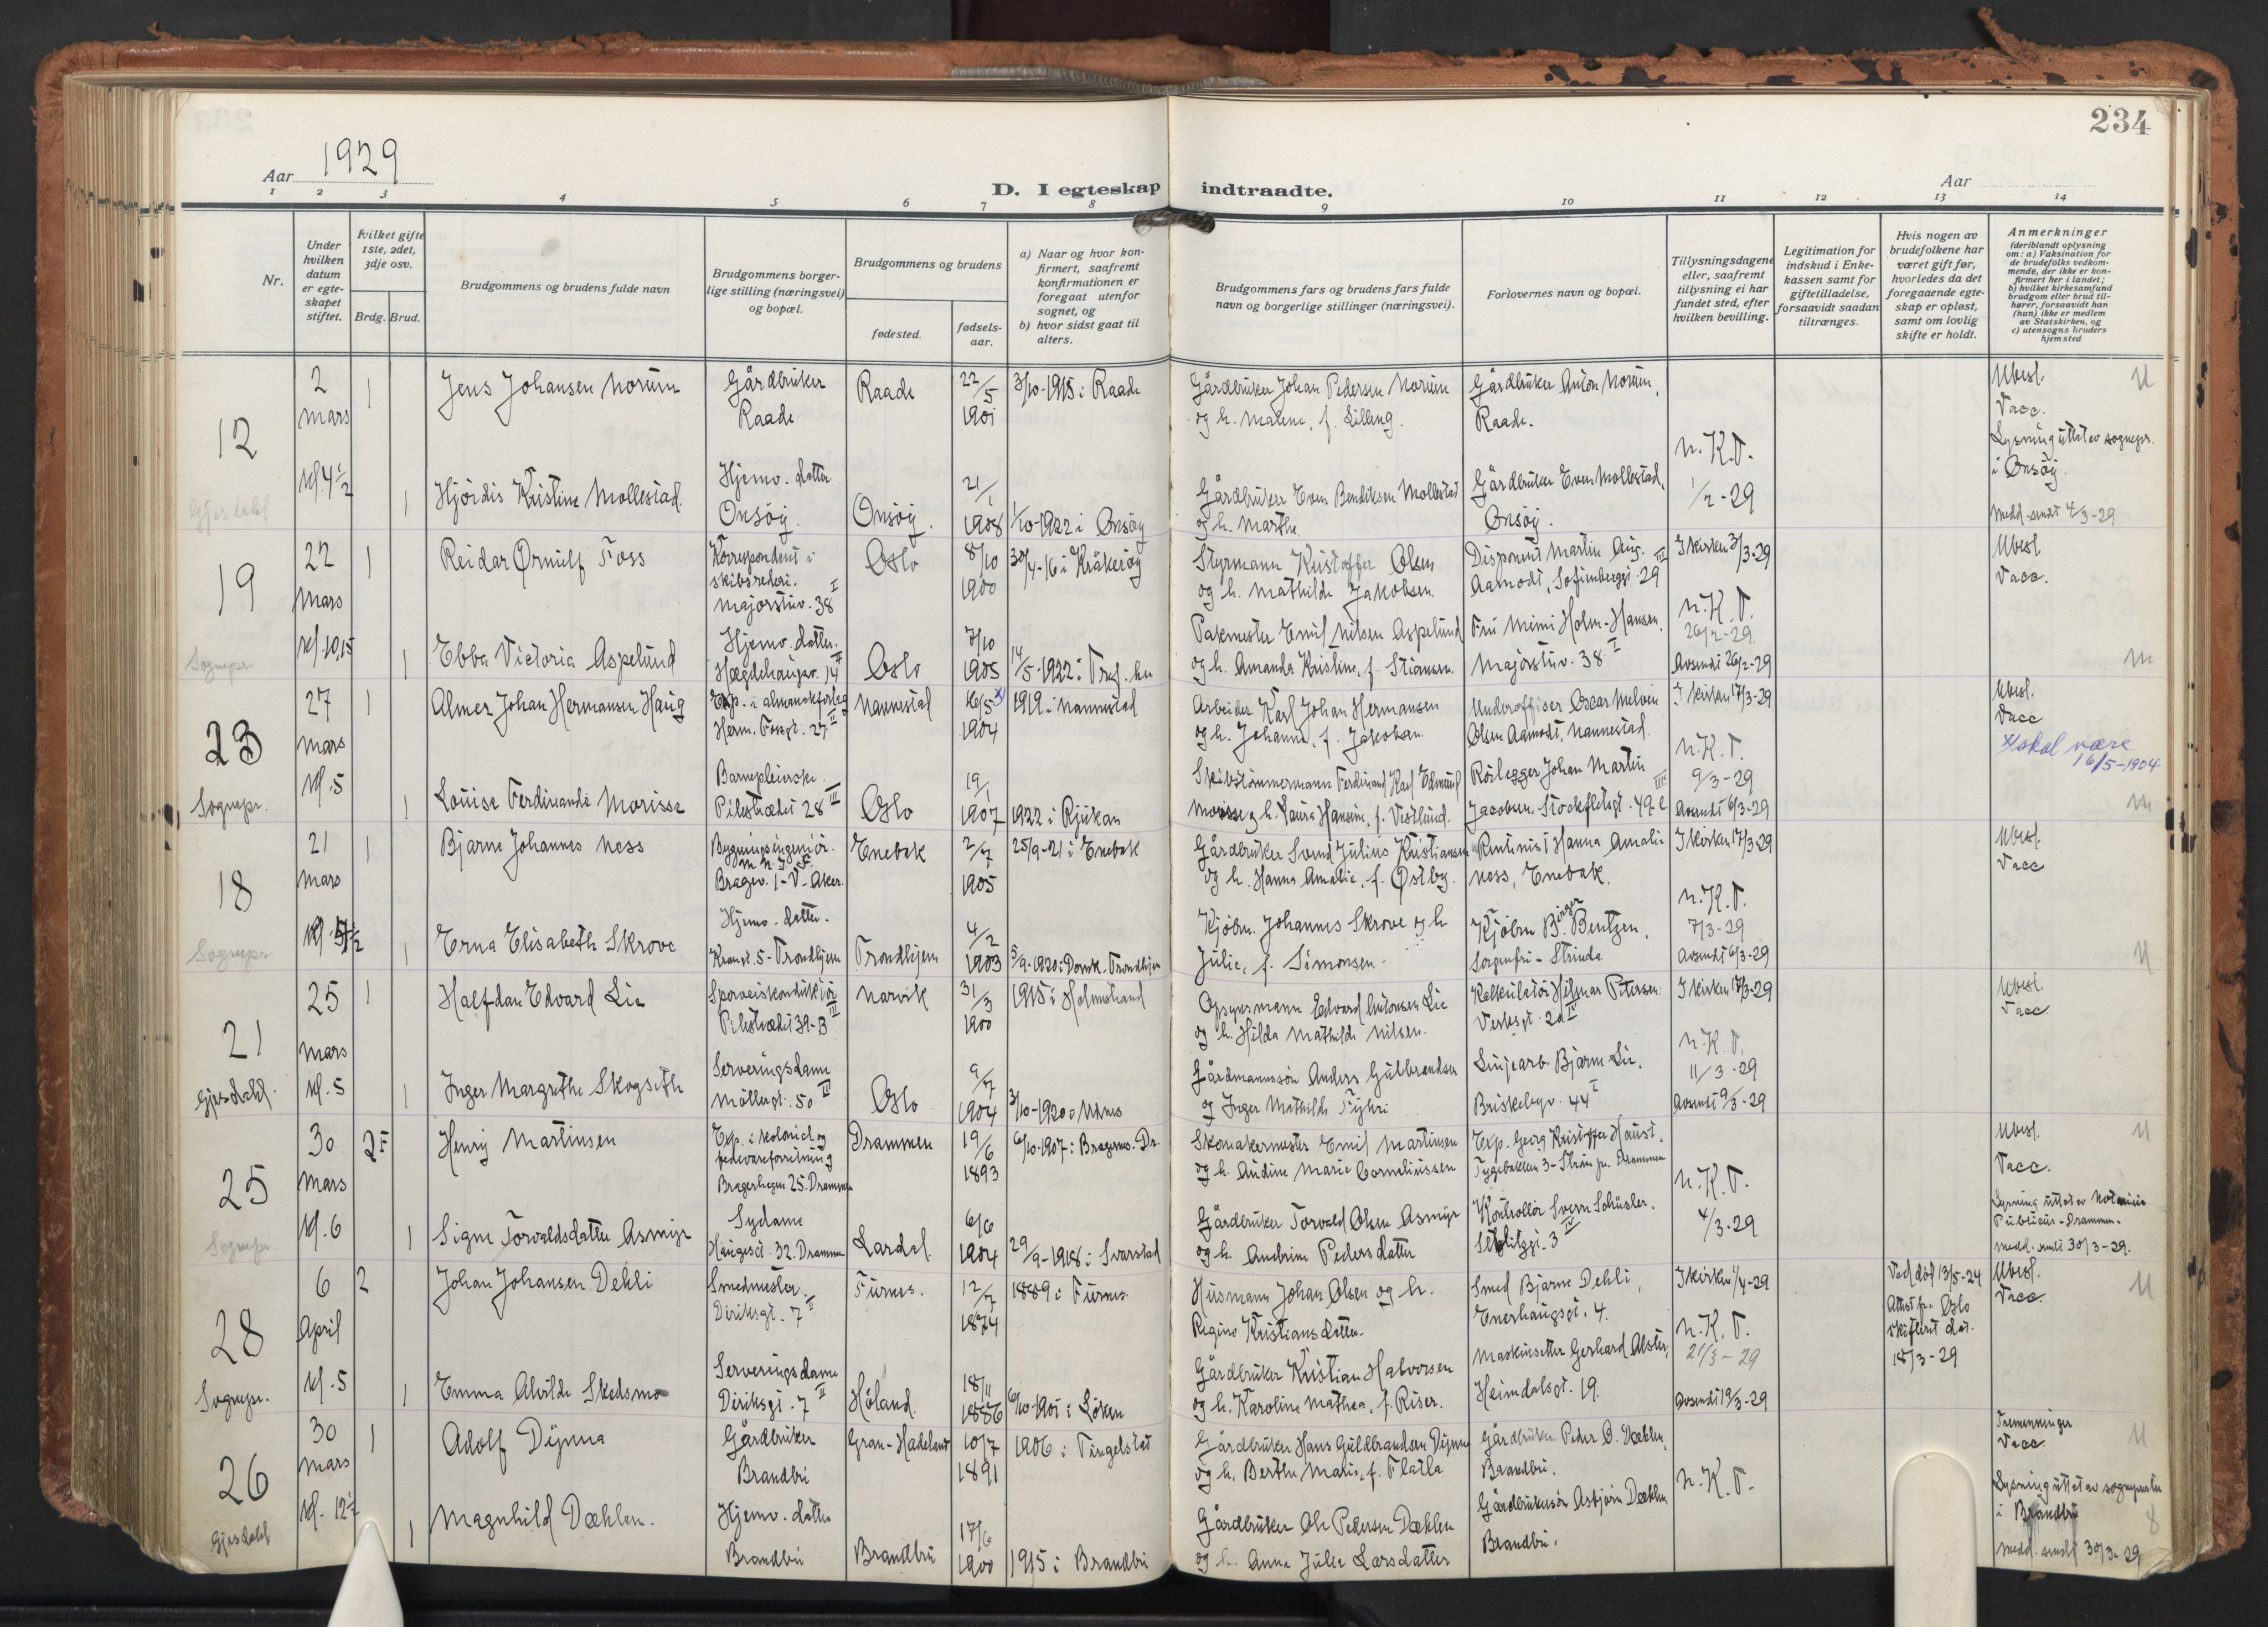 234
Aar 1929
Aar
D. I egteskap indtraadte.
1 2 3 4 5 6 7 8 9 10 11 12 13 14
Nr.
Under hvilken datum er egteskapet stiftet.
Hvilket gifte 1ste, 2det, 3dje osv.
Brdg. Brud.
Brudgommens og brudens fulde navn
Brudgommens borgerlige stilling (næringsvei) og bopæl.
Brudgommens og brudens
fødested.
fødselsaar.
a) Naar og hvor konfirmert, saafremt konfirmationen er foregaat utenfor sognet, og
b) hvor sidst gaat til alters.
Brudgommens fars og brudens fars fulde navn og borgerlige stillinger (næringsvei).
Forlovernes navn og bopæl.
Tillysningsdagene eller, saafremt tillysning ei har fundet sted, efter hvilken bevilling.
Legitimation for indskud i Enkekassen samt for giftetilladelse, forsaavidt saadan tiltrænges.
Hvis nogen av brudefolkene har været gift før, hvorledes da det foregaaende egteskap er opløst, samt om lovlig skifte er holdt.
Anmerkninger
(deriblandt oplysning om: a) Vaksination for de brudefolks vedkommende, der ikke er konfirmert her i landet; b) hvilket kirkesamfund brudgom eller brud tilhører, forsaavidt han (hun) ikke er medlem av Statskirken, og c) utensogns bruders hjemsted
12
2 Mars Kl. 4 1/2
1 Jens Johansen Norum
Gårdbruker Raade
Raade
22/5 1901
3/10-1915 i Raade
Gårdbruker Johan Pedersen Norum og h. Malene, f. Lilleng.
Gårdbruker Anton Norum, Raade.
N.K.T. 1/2-29
Ubesl. Vacc.
Lysning uttat av sognepr. i Onsøy.
Medd. sendt 4/3-29
Gjesdahl
1 Hjördis Kristine Mollestad.
Hjemv. datter Onsøy.
Onsøy.
21/1 1908
1/10-1922 i Onsøy
Gårdbruker Even Bendiksen Mollestad og h. Marthe
Gårdbruker Even Mollestad, Onsøy.
19
22 Mars Kl. 10,15
1 Reidar Ørnulf Foss
Korrespondent i skibsrederi. Majorstuv. 38 I
Oslo
8/10 1900
30/4-16 i Kråkerøy
Styrmann Kristoffer Olsen og h. Mathilde Jakobsen.
Disponent Martin Aug. Aamodt, Sofienberggt. 29 III
I kirken 3/3-29
N.K.T. 26/2-29
Avsendt 26/2-29
Ubesl Vacc.
Sognepr
1 Ebba Victoria Aspelund
Hjemv. datter. Hægdehaugsv. 14 II
Oslo
7/10 1905
14/5-1922 i Tref. ku
Pakmester Emil Nilsen Aspelund og h. Amanda Kristine, f. Stiansen.
Fru Mimi Holm-Hansen. Majorstuv. 38 I
23
27 Mars Kl. 5
1 Almer Johan Hermansen Haug
Exp. i almanakforlag Herm. Fossgt. 27 II
Nannestad
16/5 x) 1904
1919 i Nannestad
Arbeider Karl Johan Hermansen og h. Johanne, f. Jakobsen.
Underoffiser Oscar Melvin Olsen Aamodt, Nannestad.
I kirken 17/3-29
N.K.T. 9/3-29
Avsendt 6/3-29
Ubesl. Vacc
x/ skal være 16/5-1904
Sognepr.
1 Louise Ferdinande Morisse
Barnepleierske. Pilestrædet 28 III
Oslo
19/1 1907
1922 i Rjukan
Skibstømmermann Ferdinand Karl Edmund Morisse og h. Laura Hansine, f. Vestlund.
Rörlegger Johan Martin Jacobsen. Stockfletsgt. 49 e III
18
21 Mars Kl. 5 1/2
1 Bjarne Johannes Ness
Bygningsingeniör. M.N.I.F. Bragev. 1-V-Aker.
Enebak
2/7 1905
25/9-21 i Enebak
Gårdbruker Svend Julius Kristiansen og h. Hanna Amalie, f. Østby.
Rentenist Hanna Amalie Ness, Enebak.
I kirken 17/3-29
N.K.T. 7/3-29
Avsendt 6/3-29
Ubesl. Vacc
Sognepr
1 Erna Elisabeth Skrove
Hjemv. datter. Krangt. 5-Trondhjem
Trondhjem
4/2 1903
5/9-1920 i Domk. Trondhjem
Kjöbm. Johannes Skrove og h Julie, f. Simonsen.
Kjöbm Birger Bentzen, Sorgenfri-Strinda
21
25 Mars Kl. 5
1 Halfdan Edvard Lie
Sporveiskonduktör Pilestrædet 39-B III
Narvik
31/3 1900
1915 i Holmestrand
Opsynsmann Edvard Antonsen Lie og h. Hilda Mathilde Nilsen.
Kalkulatör Hilmar Petersen. Verksgt. 2a IV
I kirken 17/3-29
N.K.T. 11/3-29
Avsendt 9/3-29
Ubesl. Vacc.
Gjesdahl.
1 Inger Margrethe Skogseth
Serveringsdame Möllergt. 50 III
Oslo
9/7 1904
3/10-1920 i Modum
Gårdmannssön Anders Gulbrandsen og Inger Mathilde Fyhri
Linjearb. Bjarne Lie. Briskebyv. 44 I
25
30 Mars Kl. 6
2 F Henry Martinsen
Exp. i kolonial og fedevareforretning Bragerhagen 25. Drammen
Drammen
19/6 1893
6/10-1907 i Bragernes. Dr.
Skomakermester Emil Martinsen og h. Andine Marie Corneliussen
Exp. Georg Kristoffer Haust, Tyggebakken 3-Ströms pr. Drammen
N.K.T. 4/3-29
Ubesl. Vacc.
Lysning uttat av Notarius Publicus-Drammen.
medd. sendt 30/3-29.
Sognepr.
1 Signe Torvaldsdatter Asmyr
Sydame Haugesgt. 32. Drammen
Lardal
6/6 1904
29/9-1918 i Svarstad
Gårdbruker Torvald Olsen Asmyr og h. Andrine Pedersdatter
Kontrollör Sverre Schüsler. Stblitzgt. 3 IV
28
6 April Kl. 5
2 Johan Johansen Dehli
Smedmester. Diriksgt. 7 II
Furnes.
12/7 1874
1889 i Furnes.
Husmann Johan Olsen og h. Regine Kristiansdatter.
Smed Bjarne Dehli, Enerhaugsgt. 4.
I kirken 1/4-29
N.K.T. 21/3-29
Avsendt 19/3-29
Ved död 13/5-24 Attest fra Oslo skifterett dat. 18/3-29
Ubesl. Vacc.
Sognepr.
1 Emma Alvilde Skedsmo
Serveringsdame Diriksgt. 7 II
Höland.
18/11 1886
6/10-1901 i Löken
Gårdbruker Kristian Halvorsen og h. Karoline Mathea, f. Riser.
Maskinsetter Gerhard Alster, Heimdalsgt. 19.
26
30 Mars Kl. 12 1/2
1 Adolf Dynna
Gårdbruker Brandbu
Gran-Hadeland
10/7 1891
1906 i Tingelstad
Gårdbruker Hans Guldbrandsen Dynna og h. Berthe Marie, f. Flatla
Gårdbruker Peder O. Dæhlen, Brandbu.
N.K.T.
Tremenninger Vacc.
Lysning uttat av sognepresten i Brandbu
Medd. sendt 30/3-29
Gjesdahl
1 Magnhild Dæhlen.
Hjemv. datter Brandbu
Brandbu
17/6 1900
1915 i Brandbu
Gårdbruker Ole Pedersen Dæhlen og h. Anne Julie Larsdatter
Gårdbrukersön Asbjörn Dæhlen, Brandbu.